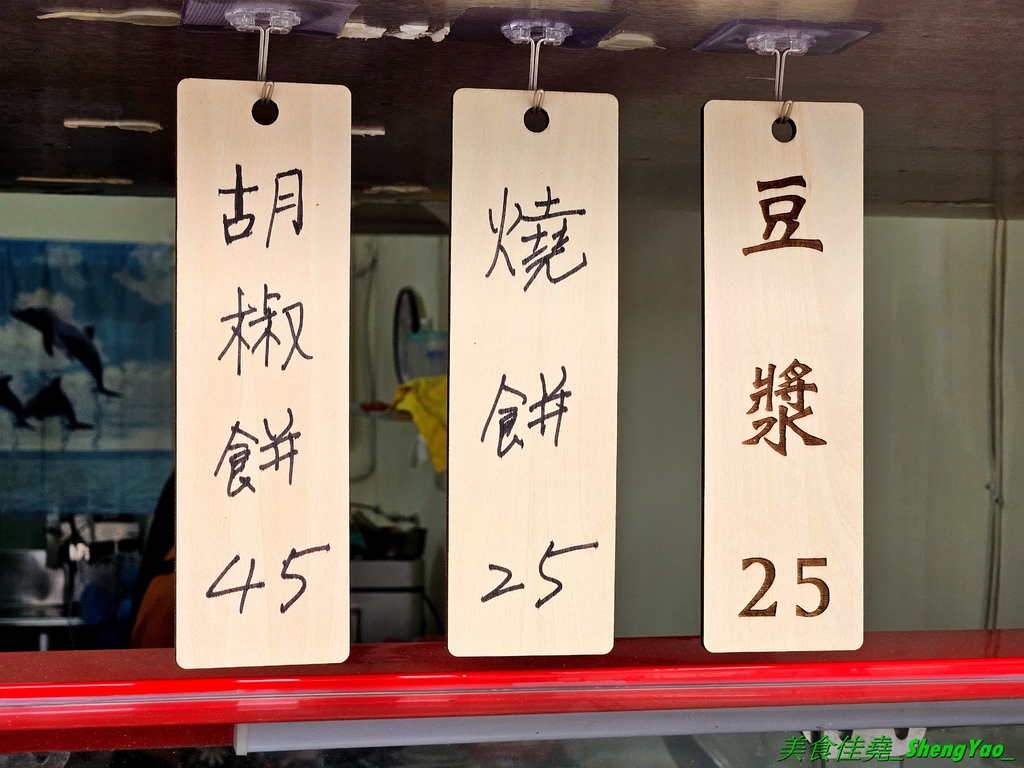 胡椒餅 45
燒餅 25
豆漿 25
美食佳堯_ShengYao_